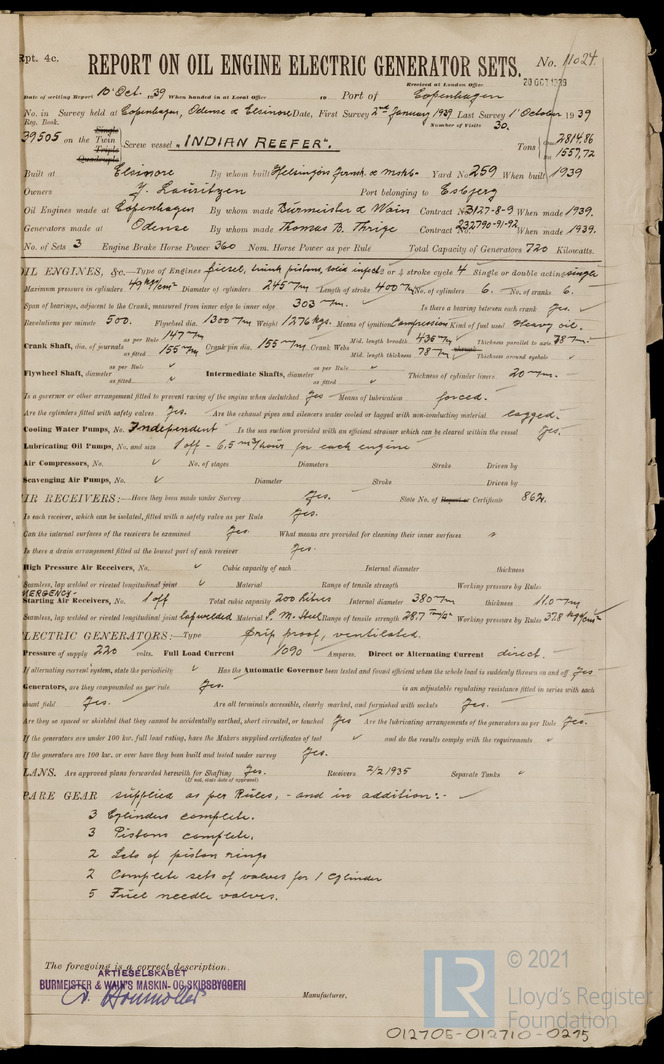 Rpt. 4c.
REPORT ON OIL ENGINE ELECTRIC GENERATOR SETS. No. 11024
Received at London Office 20 OCT 1939
Date of writing Report 10 Oct. 1939 When handed in at Local Office 19 Port of Copenhagen
No. in Survey held at Copenhagen, Odense & Elsinore Date, First Survey 2nd January 1939 Last Survey 1 October 1939
Reg. Book. Number of Visits 30.
39505 on the Single Twin Triple Quadruple Screw vessel "INDIAN REEFER". Tons Gross 2814,86 Net 1557,72
Built at Elsinore By whom built Helsingørs Jernsk. & Mskb. Yard No. 259 When built 1939
Owners J. Lauritzen Port belonging to Esbjerg
Oil Engines made at Copenhagen By whom made Burmeister & Wain Contract No. 3127-8-9 When made 1939.
Generators made at Odense By whom made Thomas B. Thrige Contract No. 232790-91-92 When made 1939.
No. of Sets 3 Engine Brake Horse Power 360 Nom. Horse Power as per Rule Total Capacity of Generators 720 Kilowatts.
OIL ENGINES, &c.—Type of Engines Diesel, trunk pistons, solid inject. 2 or 4 stroke cycle 4 Single or double acting single
Maximum pressure in cylinders 49 kg/cm² Diameter of cylinders 245 m/m Length of stroke 400 m/m No. of cylinders 6. No. of cranks 6.
Span of bearings, adjacent to the Crank, measured from inner edge to inner edge 303 m/m. Is there a bearing between each crank Yes.
Revolutions per minute 500. Flywheel dia. 1300 m/m Weight 1276 kgs. Means of ignition Compression Kind of fuel used Heavy oil.
Crank Shaft, dia. of journals as per Rule 147 m/m as fitted 155 m/m Crank pin dia. 155 m/m Crank Webs Mid. length breadth 435 m/m Mid. length thickness 78 m/m Thickness parallel to axis 78 m/m Thickness around eyehole
Flywheel Shaft, diameter as per Rule as fitted Intermediate Shafts, diameter as per Rule as fitted Thickness of cylinder liners 20 m/m.
Is a governor or other arrangement fitted to prevent racing of the engine when declutched Yes Means of lubrication forced.
Are the cylinders fitted with safety valves Yes. Are the exhaust pipes and silencers water cooled or lagged with non-conducting material lagged.
Cooling Water Pumps, No. Independent Is the sea suction provided with an efficient strainer which can be cleared within the vessel Yes.
Lubricating Oil Pumps, No. and size 1 off - 6.5 m³/hour for each engine
Air Compressors, No. No. of stages Diameters Stroke Driven by
Scavenging Air Pumps, No. Diameter Stroke Driven by
AIR RECEIVERS:—Have they been made under Survey Yes. State No. of Report or Certificate 862.
Is each receiver, which can be isolated, fitted with a safety valve as per Rule Yes.
Can the internal surfaces of the receivers be examined Yes. What means are provided for cleaning their inner surfaces
Is there a drain arrangement fitted at the lowest part of each receiver Yes.
High Pressure Air Receivers, No. Cubic capacity of each Internal diameter thickness
Seamless, lap welded or riveted longitudinal joint Material Range of tensile strength Working pressure by Rules
EMERGENCY
Starting Air Receivers, No. 1 off Total cubic capacity 200 litres Internal diameter 380 m/m thickness 11.0 m/m
Seamless, lap welded or riveted longitudinal joint lapwelded Material S. M. Steel Range of tensile strength 28.7 Working pressure by Rules 37.8 kg/cm²
ELECTRIC GENERATORS:—Type Drip proof, ventilated.
Pressure of supply 220 volts. Full Load Current 1090 Amperes. Direct or Alternating Current direct.
If alternating current system, state the periodicity Has the Automatic Governor been tested and found efficient when the whole load is suddenly thrown on and off Yes
Generators, are they compounded as per rule Yes. is an adjustable regulating resistance fitted in series with each
shunt field Yes. Are all terminals accessible, clearly marked, and furnished with sockets Yes.
Are they so spaced or shielded that they cannot be accidentally earthed, short circuited, or touched Yes Are the lubricating arrangements of the generators as per Rule Yes.
If the generators are under 100 kw. full load rating, have the Makers supplied certificates of test and do the results comply with the requirements
If the generators are 100 kw. or over have they been built and tested under survey Yes.
PLANS. Are approved plans forwarded herewith for Shafting Yes. Receivers 2/2 1935 Separate Tanks
(If not, state date of approval)
SPARE GEAR supplied as per Rules, - and in addition:-
3 Cylinders complete.
3 Pistons complete.
2 Sets of piston rings
2 Complete sets of valves for 1 cylinder
5 Fuel needle valves.
The foregoing is a correct description.
AKTIESELSKABET
BURMEISTER & WAIN'S MASKIN- OG SKIBSBYGGERI
Manufacturer.
© 2021
LR
Lloyd's Register
Foundation
012705-012710-0275